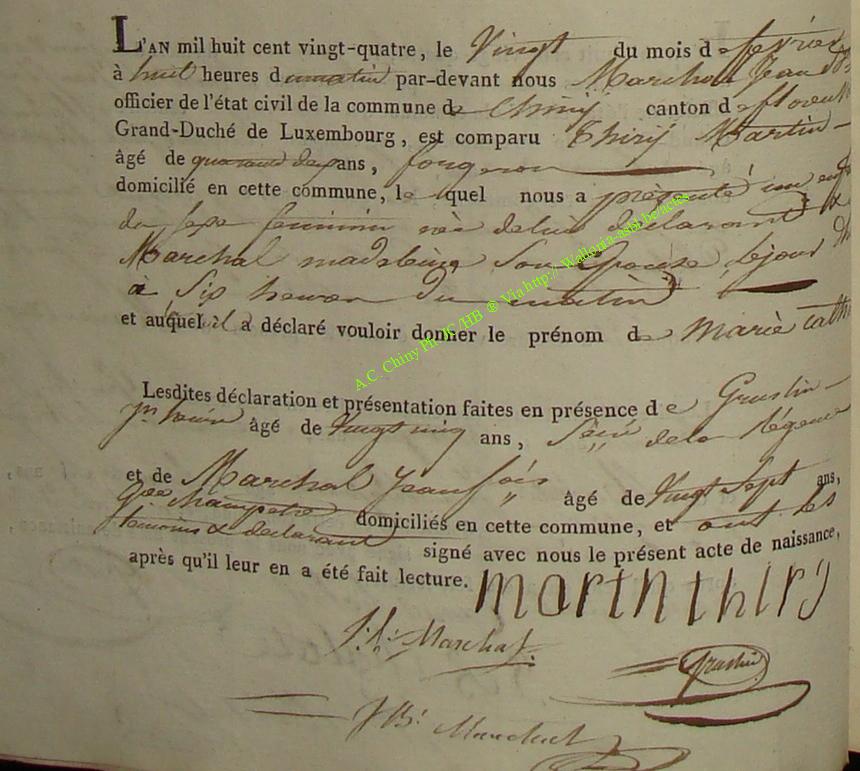 L'AN mil huit cent vingt-quatre, le Vingt du mois de fevrier
à huit heures du matin par-devant nous Marchal Jean
officier de l'état civil de la commune de Chiny canton de
Grand-Duché de Luxembourg, est comparu Thiry Martin
âgé de quarante deux ans, forgeron
domicilié en cette commune, le quel nous a présenté un
du sexe feminin née de lui declarant &
Marchal madeleine Son Epouse, le jour
à Six heures du matin
et auquel il a déclaré vouloir donner le prénom de Marie Cath
Lesdites déclaration et présentation faites en présence de Graslin
âgé de Vingt cinq ans, de la Régence
et de Marchal Jean fois âgé de Vingt Sept ans,
Gde champetre domiciliés en cette commune, et ont les
temoins & declarant signé avec nous le présent acte de naissance,
après qu'il leur en a été fait lecture.
martn thiry
J. f. Marchal
Graslin
J Bt Marchal
A.C. Chiny Ph JC /HB ® Via http:// Wallonia-asbl.be/actes